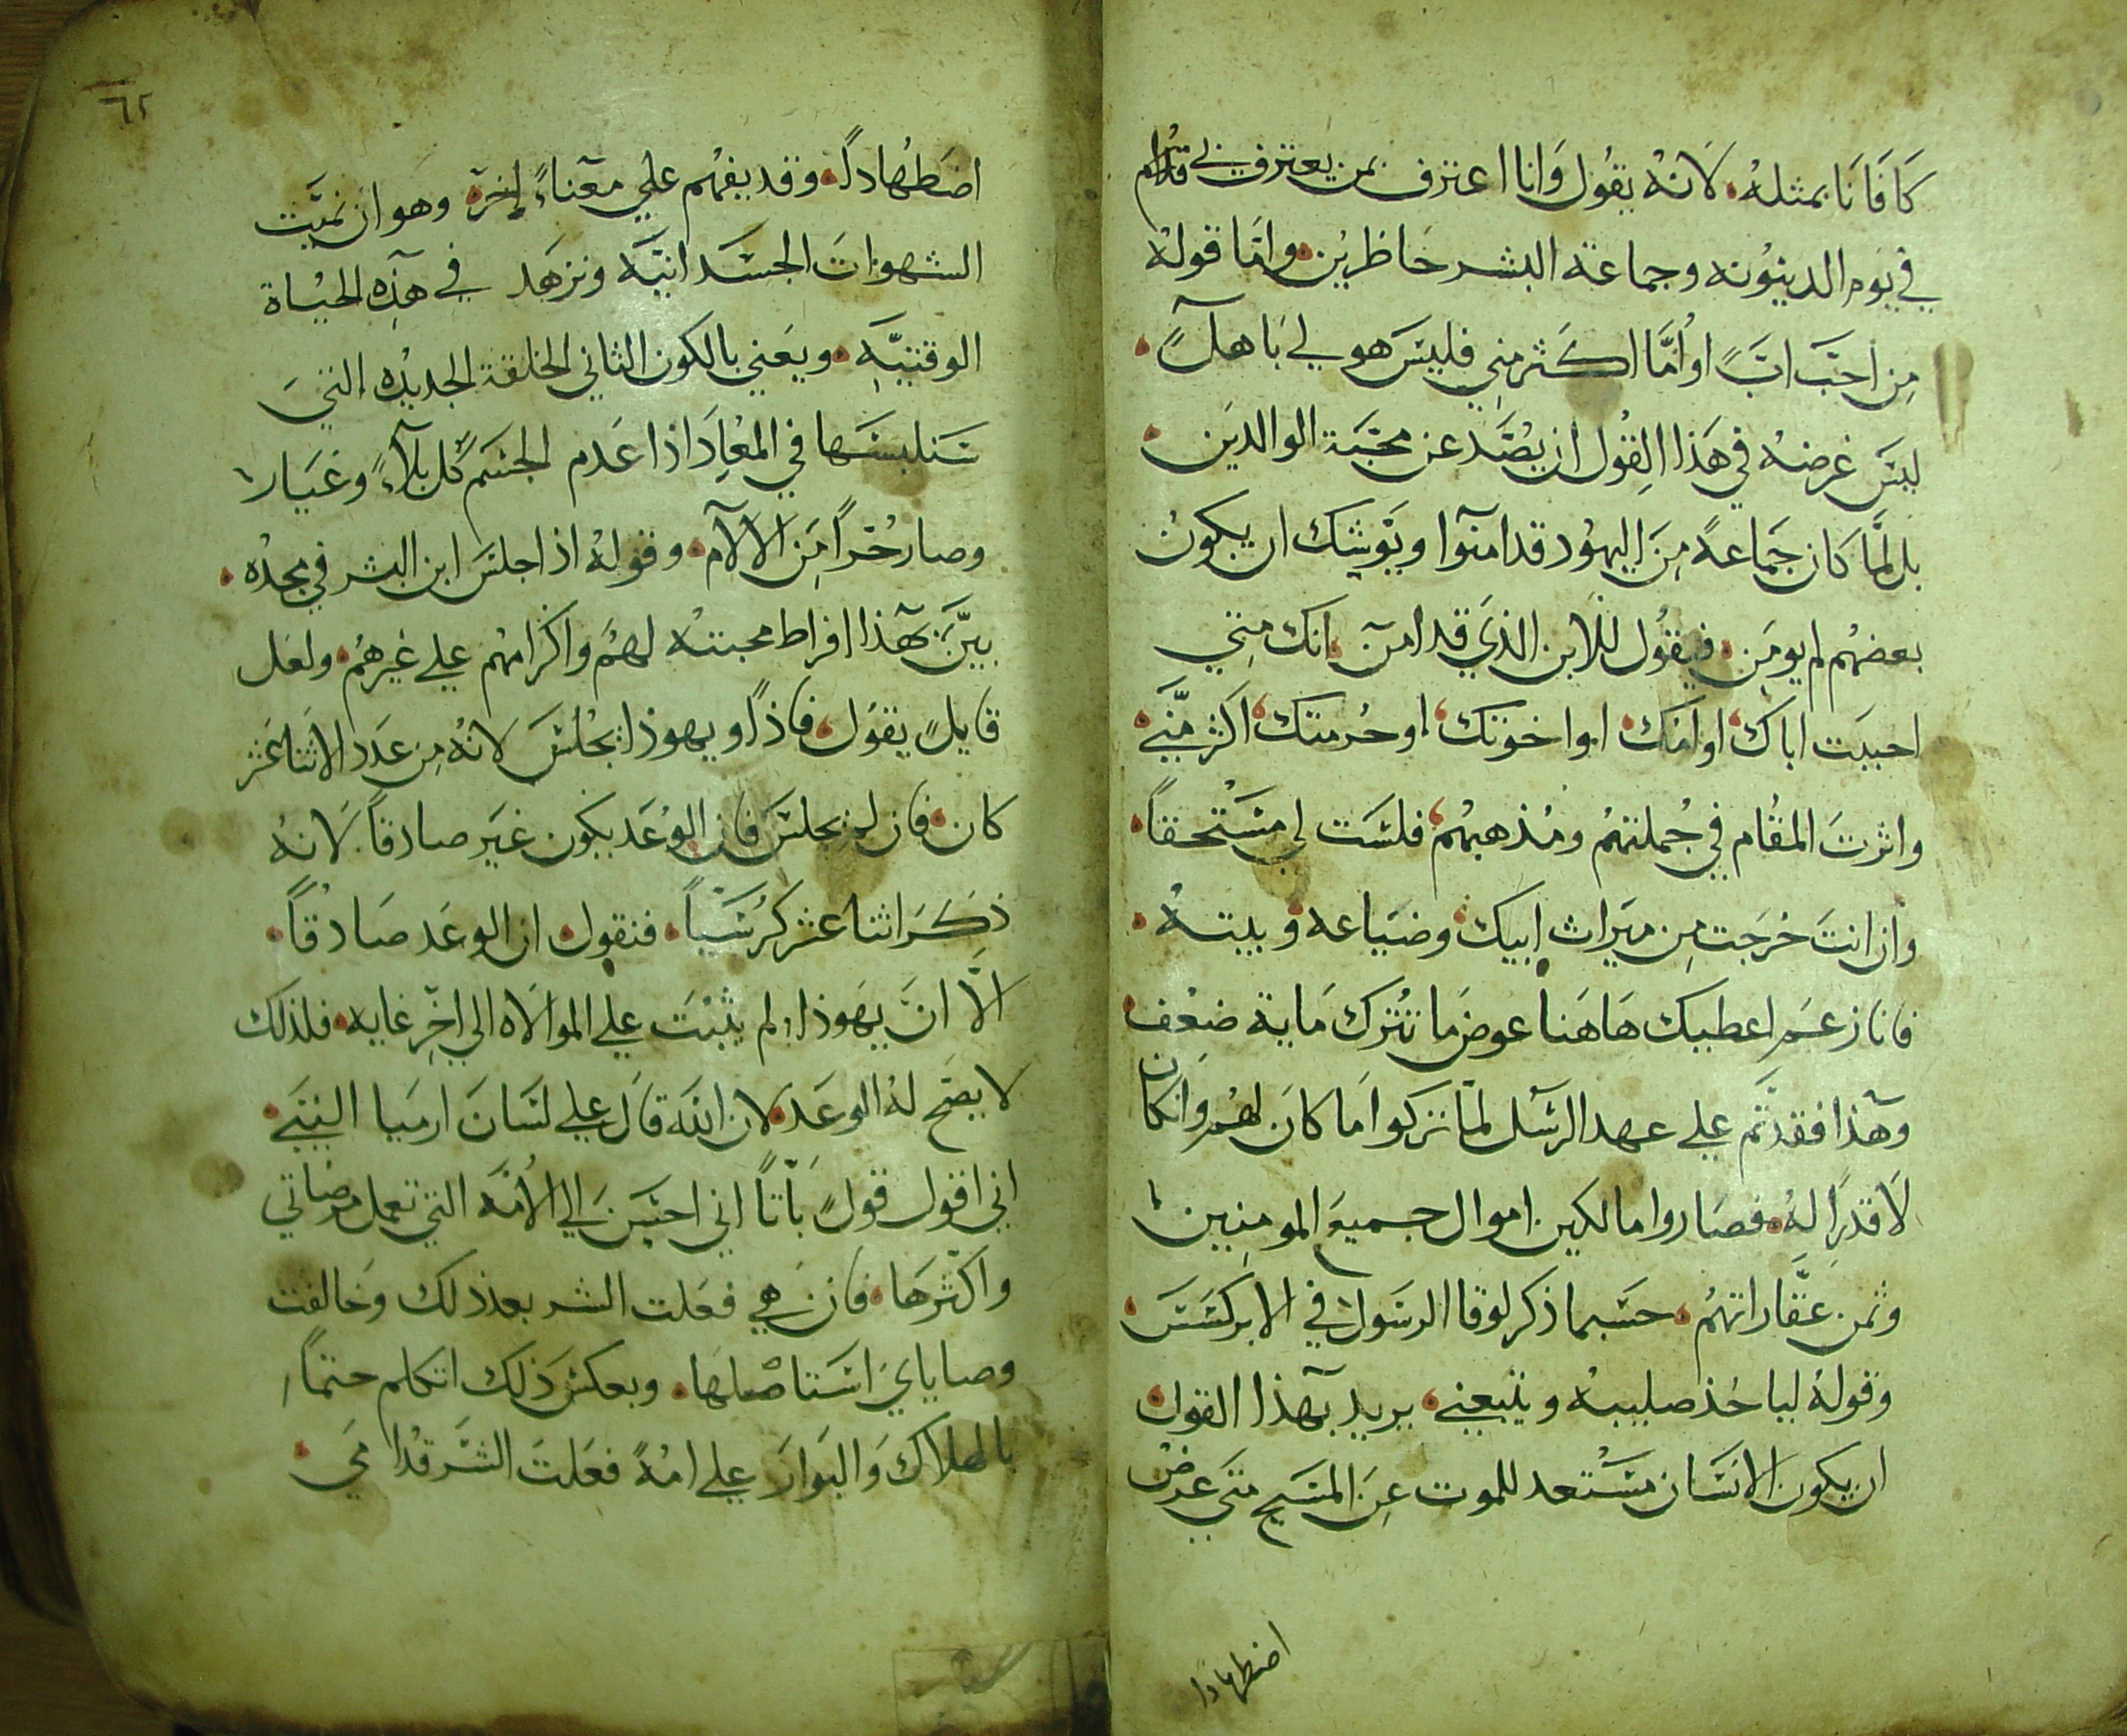 كافانا بمثله۰ لانه يقول وانا اعترف بمن يعترف بي قدام
في يوم الدينونه وجماعة البشر حاظرين۰ واما قوله
من احبّ ابًّ او امًّا اكثر مني فليس هو لي باهلاً۰
ليس غرضه في هذا القول ان يصّد عن محبّة الوالدين۰
بل لمّا كان جماعةً من اليهود قد امنوا ويوشك ان يكون
بعضهم لم يومن۰ فيقول للابن الذي قد امن انك متي
احببت اباك۰ او امك۰ او اخوتك۰ او حرمتك۰ اكثر منّي۰
واثرت المقام في جملتهم ومذهبهم۰ فلست لي مستحقاً۰
وان انت خرجت من ميراث ابيك۰ وضياعه۰ وبيته۰
فانا زعم اعطيك هاهنا عوض ما تترك ماية ضعف۰
وهذا فقد تمّ علي عهد الرسل لمّا تركوا ما كان لهم وانكان
لا قدر له۰ فصاروا مالكين اموال جميع المومنين
وثمن عقّاراتهم۰ حسبما ذكر لوقا الرسول في الابركسس۰
وقوله لياخذ صليبه ويتبعني۰ يريد بهذا القول۰
ان يكون الانسان مستعد للموت عن المسيح متي عرض
اضطهادا
٦٢
اضطهادً له۰ وقد يفهم علي معناءً اخره۰ وهو ان نميّت
الشهوات الجسدانيّه ونزهد في هذه الحياة
الوقتيّه۰ ويعني بالكون الثاني الخلقة الجديده التي
تتلبسها في المعاد اذا عدم الجسم كل بلاءً وغيار
وصار حرّاً من الالام۰ وقوله اذا جلس ابن البشر في مجده۰
بيّن بهذا افراط محبته لهم واكرامهم علي غيرهم۰ ولعل
قايلٍ يقول۰ فاذاً ويهوذا يجلس لانه من عدد الاثنا عشر
كان۰ فان لم يجلس فان الوعد يكون غير صادقاً لانه
ذكر اثنا عشر كرسيّاً۰ فنقول۰ ان الوعد صادقاً۰
الاّ انّ يهوذا لم يثبت علي الموالاه الي اخر غايه۰ فلذلك
لا يصّح له الوعد۰ لان الله قال علي لسان ارميا النبي۰
اني اقول قولٍ باتاً اني احسن الي الأمّه التي تعمل مرضاتي
واكثرها۰ فان هي فعلت الشر بعد ذلك وخالفت
وصاياي استاصلها۰ وبعكس ذلك اتكلم حتماً
بالهلاك والبوار علي امةً فعلت الشّر قدامي۰